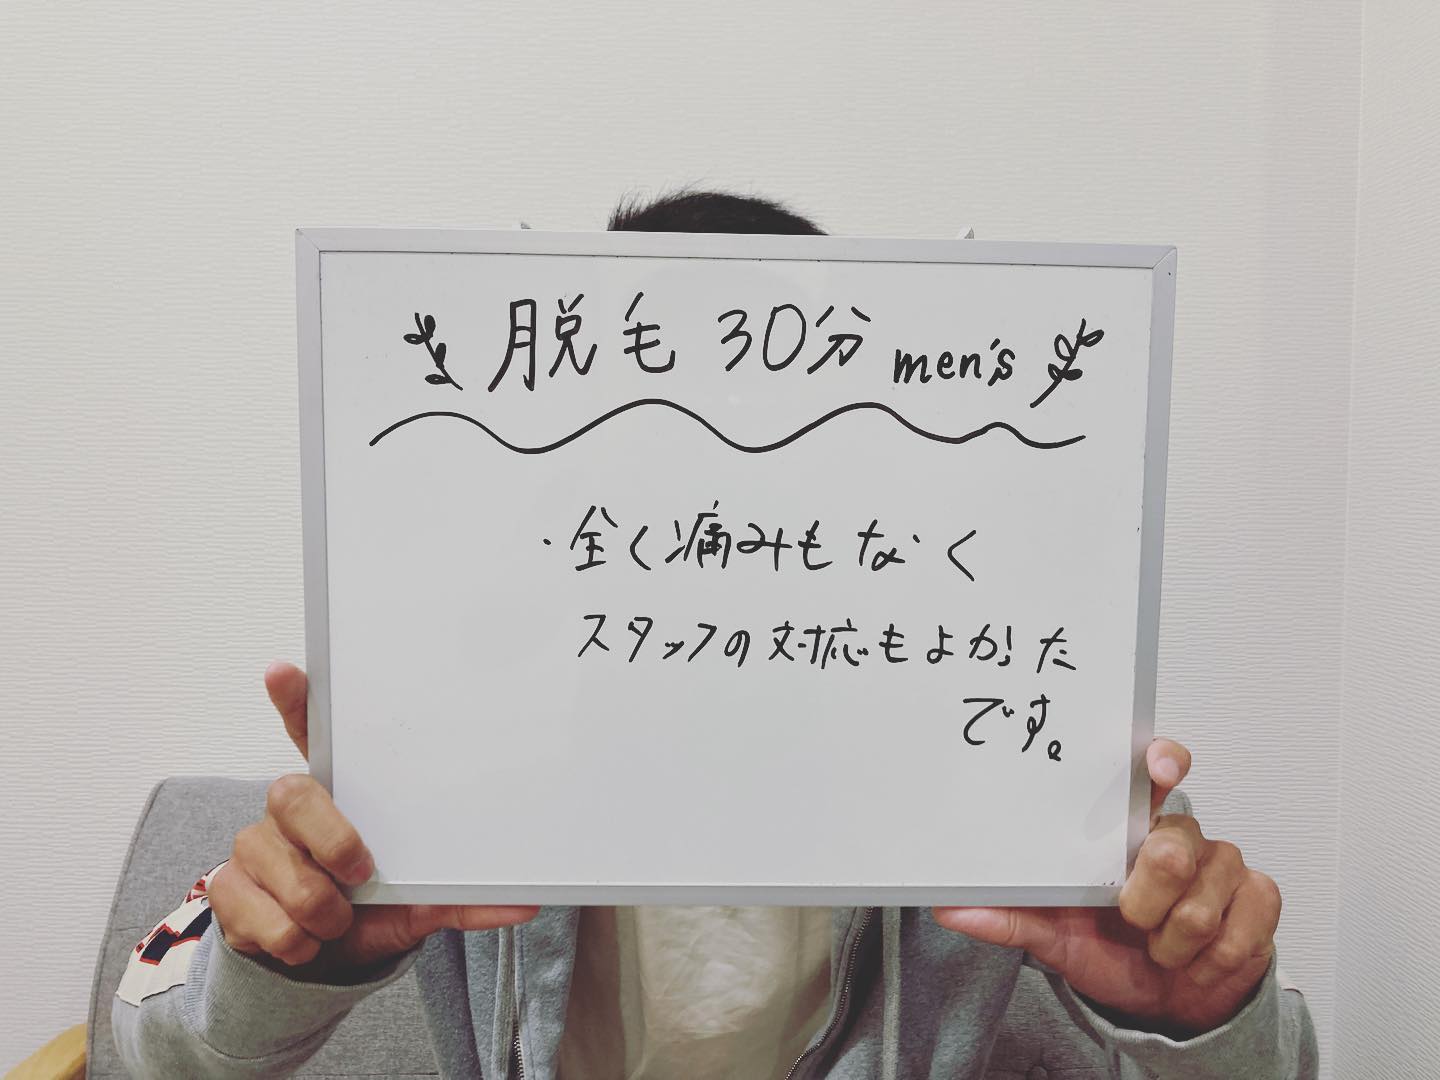 脱毛 30分 men's
・全く痛みもなく
スタッフの対応もよかった
です。